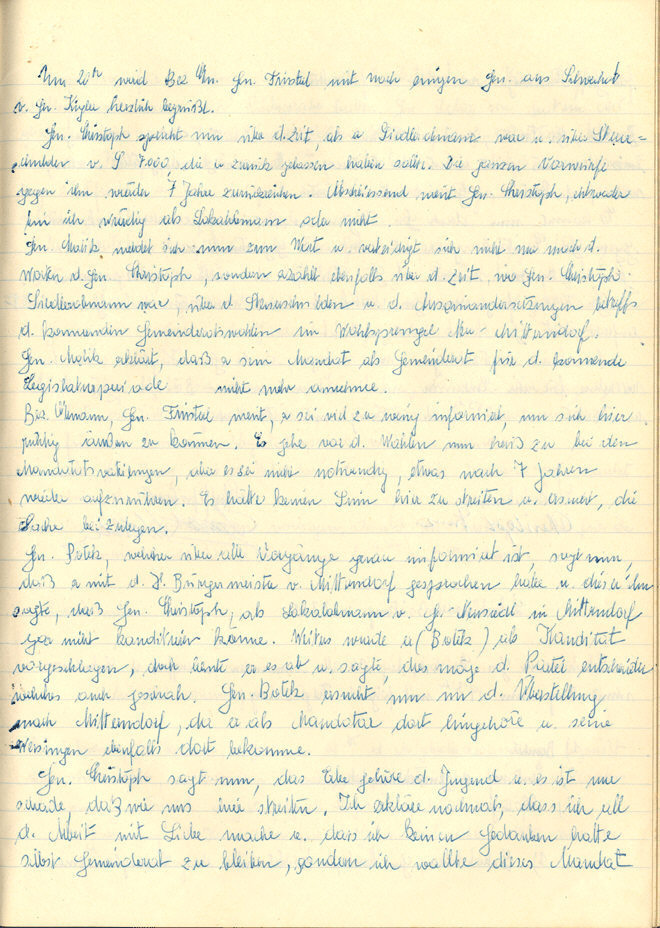 Um 20h wird Bez. Gen. Tristel mit noch einigen Gen. aus Schwechat
v. Gen. herzlich begrüßt.
Gen. Christoph spricht nun über d. Zeit, als er Siedlerobmann war u. über
v. S 7000, die er zurück gelassen haben sollte. Die ganzen Vorwürfe
gegen ihn würden 7 Jahre zurückreichen. Abschliessend meint Gen. Christoph, entweder
bin ich würdig als Lokalobmann oder nicht.
Gen. Malik meldet sich nun zum Wort u. verteidigt sich nicht nur nach d.
Worten d. Gen. Christoph, sondern erzählt ebenfalls über d. Zeit, wo Gen. Christoph
Siedlerobmann war, über d. u. d. Auseinandersetzungen betreffs
d. kommenden Gemeinderatswahlen im Wahlsprengel Neu-Mitterndorf.
Gen. Malik erklärt, daß er sein Mandat als Gemeinderat für d. kommende
Legislaturperiode nicht mehr annehme.
Bez. Obmann, Gen. Tristel meint, er sei viel zu wenig informiert, um sich hier
richtig äußern zu können. Es gehe vor d. Wahlen nun heiß zu bei den
, aber es sei nicht notwendig, etwas nach 7 Jahren
wieder aufzurühren. Es hätte keinen Sinn hier zu streiten u. ersucht, die
Sache beizulegen.
Gen. Botik, welcher über alle Vorgänge genau informiert ist, sagt nun,
daß er mit d. H. Bürgermeister v. Mitterndorf gesprochen habe u. dieser ihm
sagte, daß Gen. Christoph, als Lokalobmann v. Gr. Neusiedl in Mitterndorf
gar nicht kandidieren könne. Weiters wurde er (Botik) als Kanditat
vorgeschlagen, doch lehnte er es ab u. sagte, das möge d. Partei entscheiden
welches auch geschah. Gen. Botik ersucht nun um d. Überstellung
nach Mitterndorf, da er als Mandatar dort hingehöre u. seine
Weisungen ebenfalls dort bekomme.
Gen. Christoph sagt nun, das Erbe gehöre d. Jugend u. es ist nur
schade, daß wir uns hier streiten. Ich erkläre nochmals, dass ich all
d. Arbeit mit Liebe mache u. dass ich keinen Gedanken hatte
selbst Gemeinderat zu bleiben, sondern ich wollte dieses Mandat